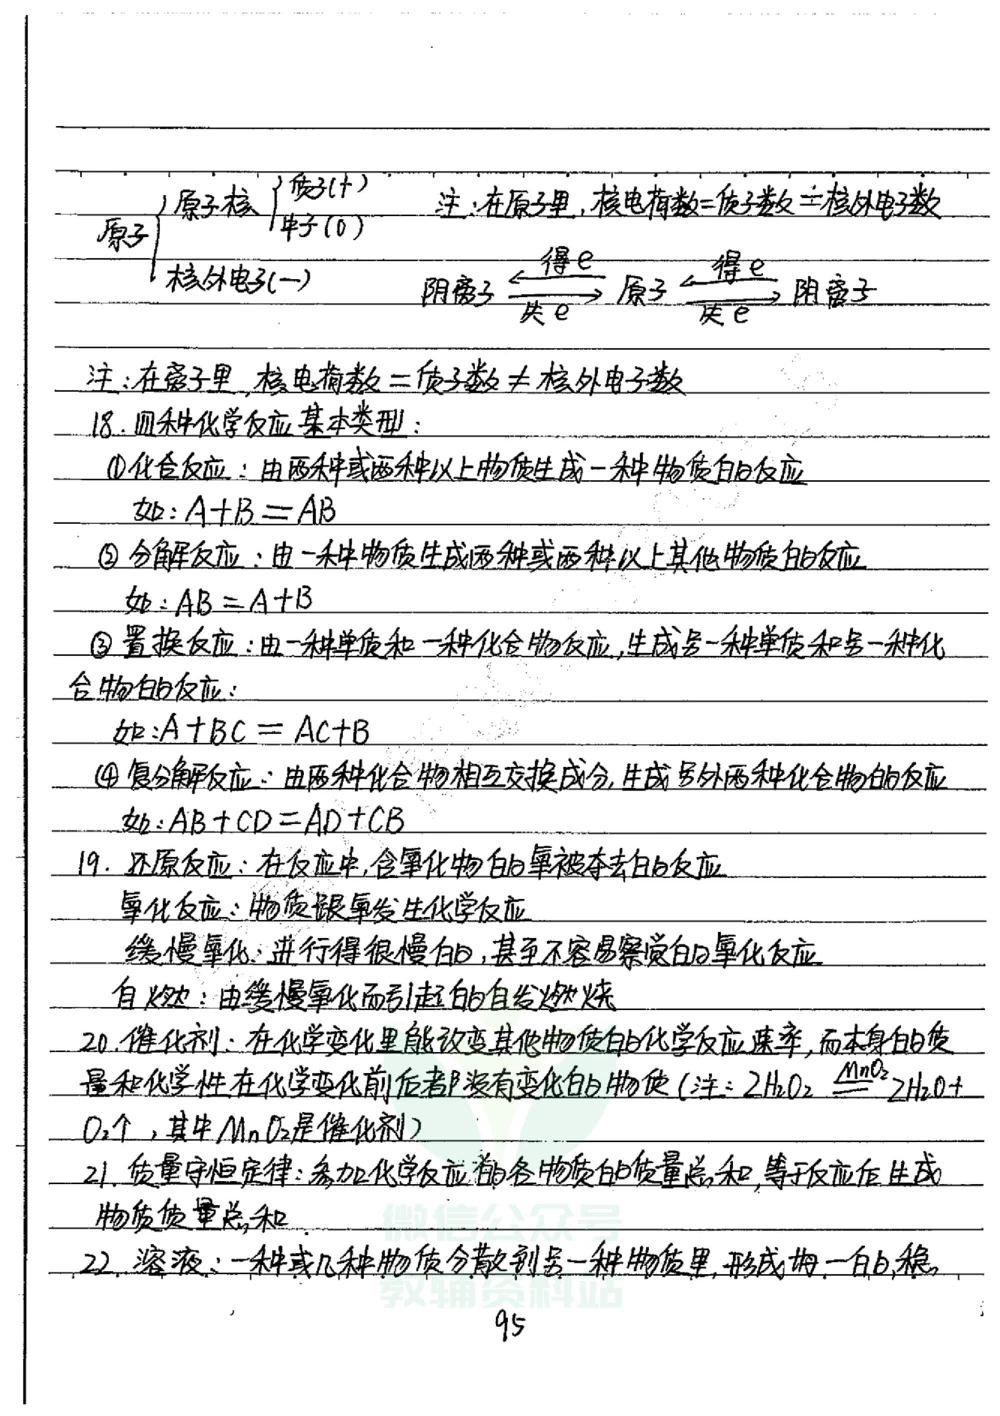 原子 { 原子核 { 质子(+)
中子(0)
核外电子(一)
注:在原子里,核电荷数=质子数=核外电子数
阴离子 ⇌ 原子 ⇌ 阴离子
得e 得e
失e 失e
注:在离子里,核电荷数=质子数≠核外电子数
18.四种化学反应基本类型:
①化合反应:由两种或两种以上物质生成一种物质的反应
如:A+B=AB
②分解反应:由一种物质生成两种或两种以上其他物质的反应
如:AB=A+B
③置换反应:由一种单质和一种化合物反应,生成另一种单质和另一种化
合物的反应:
如:A+BC=AC+B
④复分解反应:由两种化合物相互交换成分,生成另外两种化合物的反应
如:AB+CD=AD+CB
19.还原反应:在反应中,含氧化物的氧被夺去的反应
氧化反应:物质跟氧发生化学反应
缓慢氧化:进行得很慢的,甚至不容易察觉的氧化反应
自燃:由缓慢氧化而引起的自发燃烧
20.催化剂:在化学变化里能改变其他物质的化学反应速率,而本身的质
量和化学性在化学变化前后都没有变化的物质(注:2H₂O₂ MnO₂═ 2H₂O+
O₂↑,其中MnO₂是催化剂)
21.质量守恒定律:参加化学反应的各物质的质量总和,等于反应后生成
物质质量总和
22.溶液:一种或几种物质分散到另一种物质里,形成均一的,稳。
微信公众号
教辅资料站
95